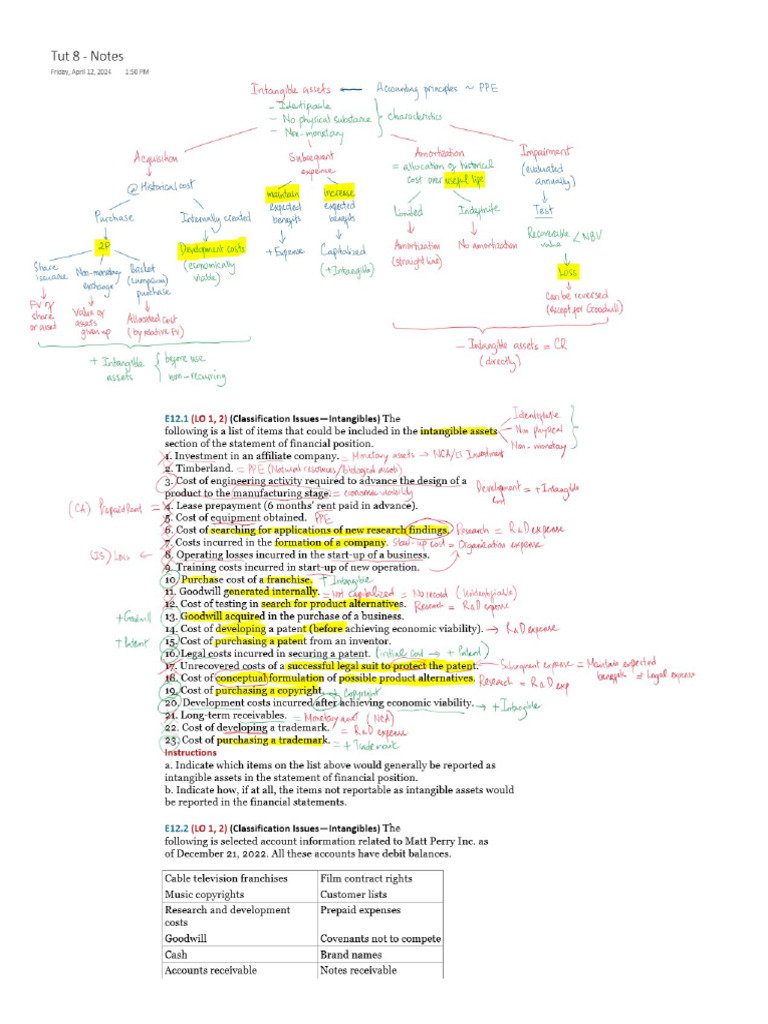 Tut 8 - Notes
Friday, April 12, 2024 1:50 PM
Intangible assets ← Accounting principles ~ PPE
- Identifiable
- No physical substance
- Non-monetary
characteristics
Acquisition
@ Historical cost
Purchase
Internally created
2P
Development costs
(economically
viable)
Share
issuance
Non-monetary
exchange
Basket
(Lumpsum)
purchase
FV of
share
or asset
Value of
assets
given up
Allocated cost
(by relative FV)
+ Intangible
assets
before use
non-recurring
Subsequent
expense
maintain
expected
benefits
+ Expense
increase
expected
benefits
Capitalized
(+Intangible)
Amortization
= allocation of historical
cost over useful life
Limited
Indefinite
Amortization
(straight line)
No amortization
Impairment
(evaluated
annually)
Test
Recoverable < NBV
value
Loss
Can be reversed
(except for Goodwill)
- Intangible assets = CR
(directly)
E12.1 (LO 1, 2) (Classification Issues—Intangibles) The
following is a list of items that could be included in the intangible assets
section of the statement of financial position.
Identifiable
Non physical
Non-monetary
1. Investment in an affiliate company. = Monetary assets → NCA/LT Investment
2. Timberland. = PPE (Natural resources/Biological assets)
3. Cost of engineering activity required to advance the design of a
product to the manufacturing stage. = economic viability
Development = + Intangible
cost
(CA) Prepaid Rent ←
4. Lease prepayment (6 months' rent paid in advance).
5. Cost of equipment obtained. PPE
6. Cost of searching for applications of new research findings. Research = R&D expense
7. Costs incurred in the formation of a company. Start-up cost = Organization expense
(IS) Loss ←
8. Operating losses incurred in the start-up of a business.
9. Training costs incurred in start-up of new operation.
10. Purchase cost of a franchise. + Intangible
11. Goodwill generated internally. = Not capitalized = No record (Unidentifiable)
12. Cost of testing in search for product alternatives. Research = R&D expense
+ Goodwill
13. Goodwill acquired in the purchase of a business.
14. Cost of developing a patent (before achieving economic viability). → R&D expense
+ Patent
15. Cost of purchasing a patent from an inventor.
16. Legal costs incurred in securing a patent. (initial cost → + Patent)
17. Unrecovered costs of a successful legal suit to protect the patent. Subsequent expense = Maintain expected
benefits = Legal expense
18. Cost of conceptual formulation of possible product alternatives. Research = R&D exp
19. Cost of purchasing a copyright. + Copyright
20. Development costs incurred after achieving economic viability. → + Intangible
21. Long-term receivables. = Monetary asset (NCA)
22. Cost of developing a trademark. = R&D expense
23. Cost of purchasing a trademark. = + Trademark
Instructions
a. Indicate which items on the list above would generally be reported as
intangible assets in the statement of financial position.
b. Indicate how, if at all, the items not reportable as intangible assets would
be reported in the financial statements.
E12.2 (LO 1, 2) (Classification Issues—Intangibles) The
following is selected account information related to Matt Perry Inc. as
of December 21, 2022. All these accounts have debit balances.
Cable television franchises Film contract rights
Music copyrights Customer lists
Research and development Prepaid expenses
costs
Goodwill Covenants not to compete
Cash Brand names
Accounts receivable Notes receivable